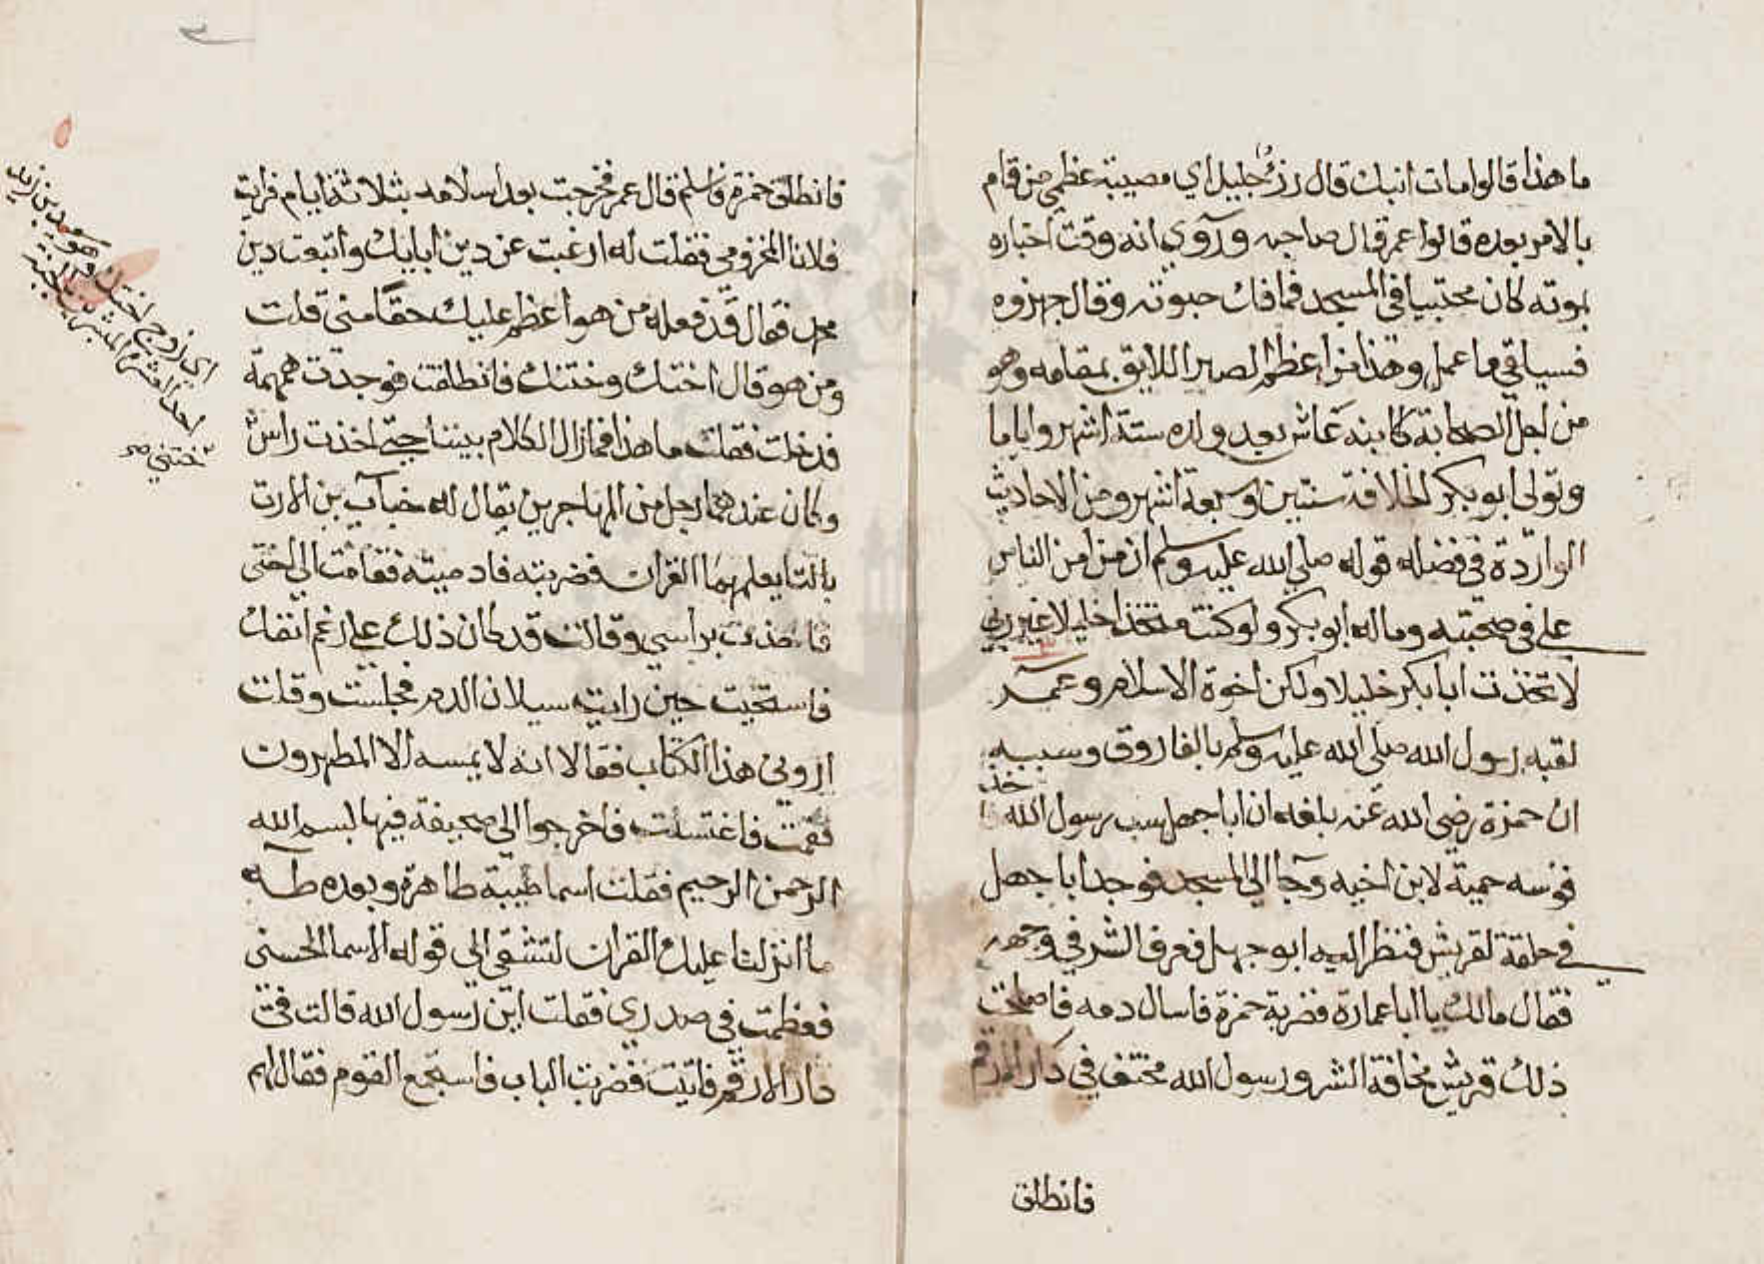 ما هذا قالوا مات ابنك قال رزء جليل اي مصيبة عظمي من قام
بالامر بعده قالوا عمر قال صاحبه وروي انه وقت اخباره
بموته كان محتبيا في المسجد فما فك حبوته وقال جهزوه
فسياقي ما عمل وهذا من اعظم الصبر اللايق بمقامه وهو
من اجل الصحابة كابنه عاش بعد ولده ستة اشهر واياما
وتولى ابو بكر الخلافة سنتين وسبعة اشهر ومن الاحاديث
الواردة في فضله قوله صلي الله عليه وسلم ان من امن الناس
علي في صحبته وماله ابو بكر ولو كنت متخذا خليلا غير ربي
لاتخذت ابا بكر خليلا ولكن اخوة الاسلام وعمر
لقبه رسول الله صلى الله عليه وسلم بالفاروق وسببه
ان حمزة رضي الله عنه بلغه ان ابا جهل سب رسول الله فاخذ
قوسه حمية لابن اخيه وجا الى المسجد فوجد ابا جهل
في حلقة لقريش فنظر اليه ابو جهل فعرف الشر في وجهه
فقال مالك يا ابا عمارة فضربه حمزة فاسال دمه فاصلحت
ذلك قريش مخافة الشر ورسول الله مختف في دار الارقم
فانطلق
فانطلق حمزة فاسلم قال عمر فخرجت بعد اسلامه بثلاثة ايام فرايت
فلانا المخزومي فقلت له ارغبت عن دين ابايك واتبعت دين
محمد فقال قد فعله من هو اعظم عليك حقا مني قلت
ومن هو قال اختك وختنك فانطلقت فوجدت همهمة
فدخلت فقلت ما هذا فما زال الكلام بيننا حتى اخذت راس
وكان عندهما رجل من المهاجرين يقال له خباب بن الارت
بالتا يعلمهما القران فضربته فادميته فقامت الي اختى
فاخذت براسي وقالت قد كان ذلك علي رغم انفك
فاستحيت حين رايت سيلان الدم فجلست وقلت
اروني هذا الكتاب فقالا انه لا يمسه الا المطهرون
فقمت فاغتسلت فاخرجوا الي صحيفة فيها بسم الله
الرحمن الرحيم فقلت اسما طيبة طاهرة وبعده طه
ما انزلنا عليك القران لتشقى الي قوله الاسما الحسنى
فعظمت في صدري فقلت اين رسول الله قالت في
دار الارقم فاتيت فضربت الباب فاستجمع القوم فقال لهم
اي زوج اختك وهو سعيد بن زيد
احد العشرة المبشرين بالجنة
ختني